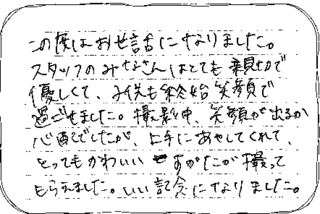 この度はお世話になりました。
スタッフのみなさんはとても親切で
優しくて、子供も終始笑顔で
過ごせました。撮影中、笑顔が出るか
心配でしたが、上手にあやしてくれて、
とってもかわいいすがたが撮って
もらえました。いい記念になりました。